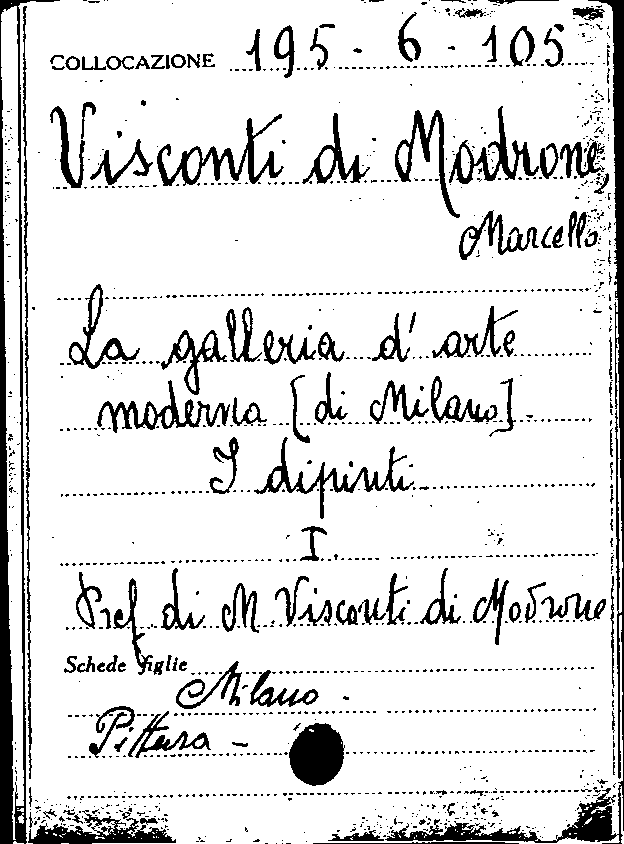 COLLOCAZIONE 195-6-105
Visconti di Modrone,
Marcello
La galleria d'arte
moderna [di Milano].
I dipinti
I.
Pref. di M. Visconti di Modrone
Schede figlie
Milano -
Pittura -